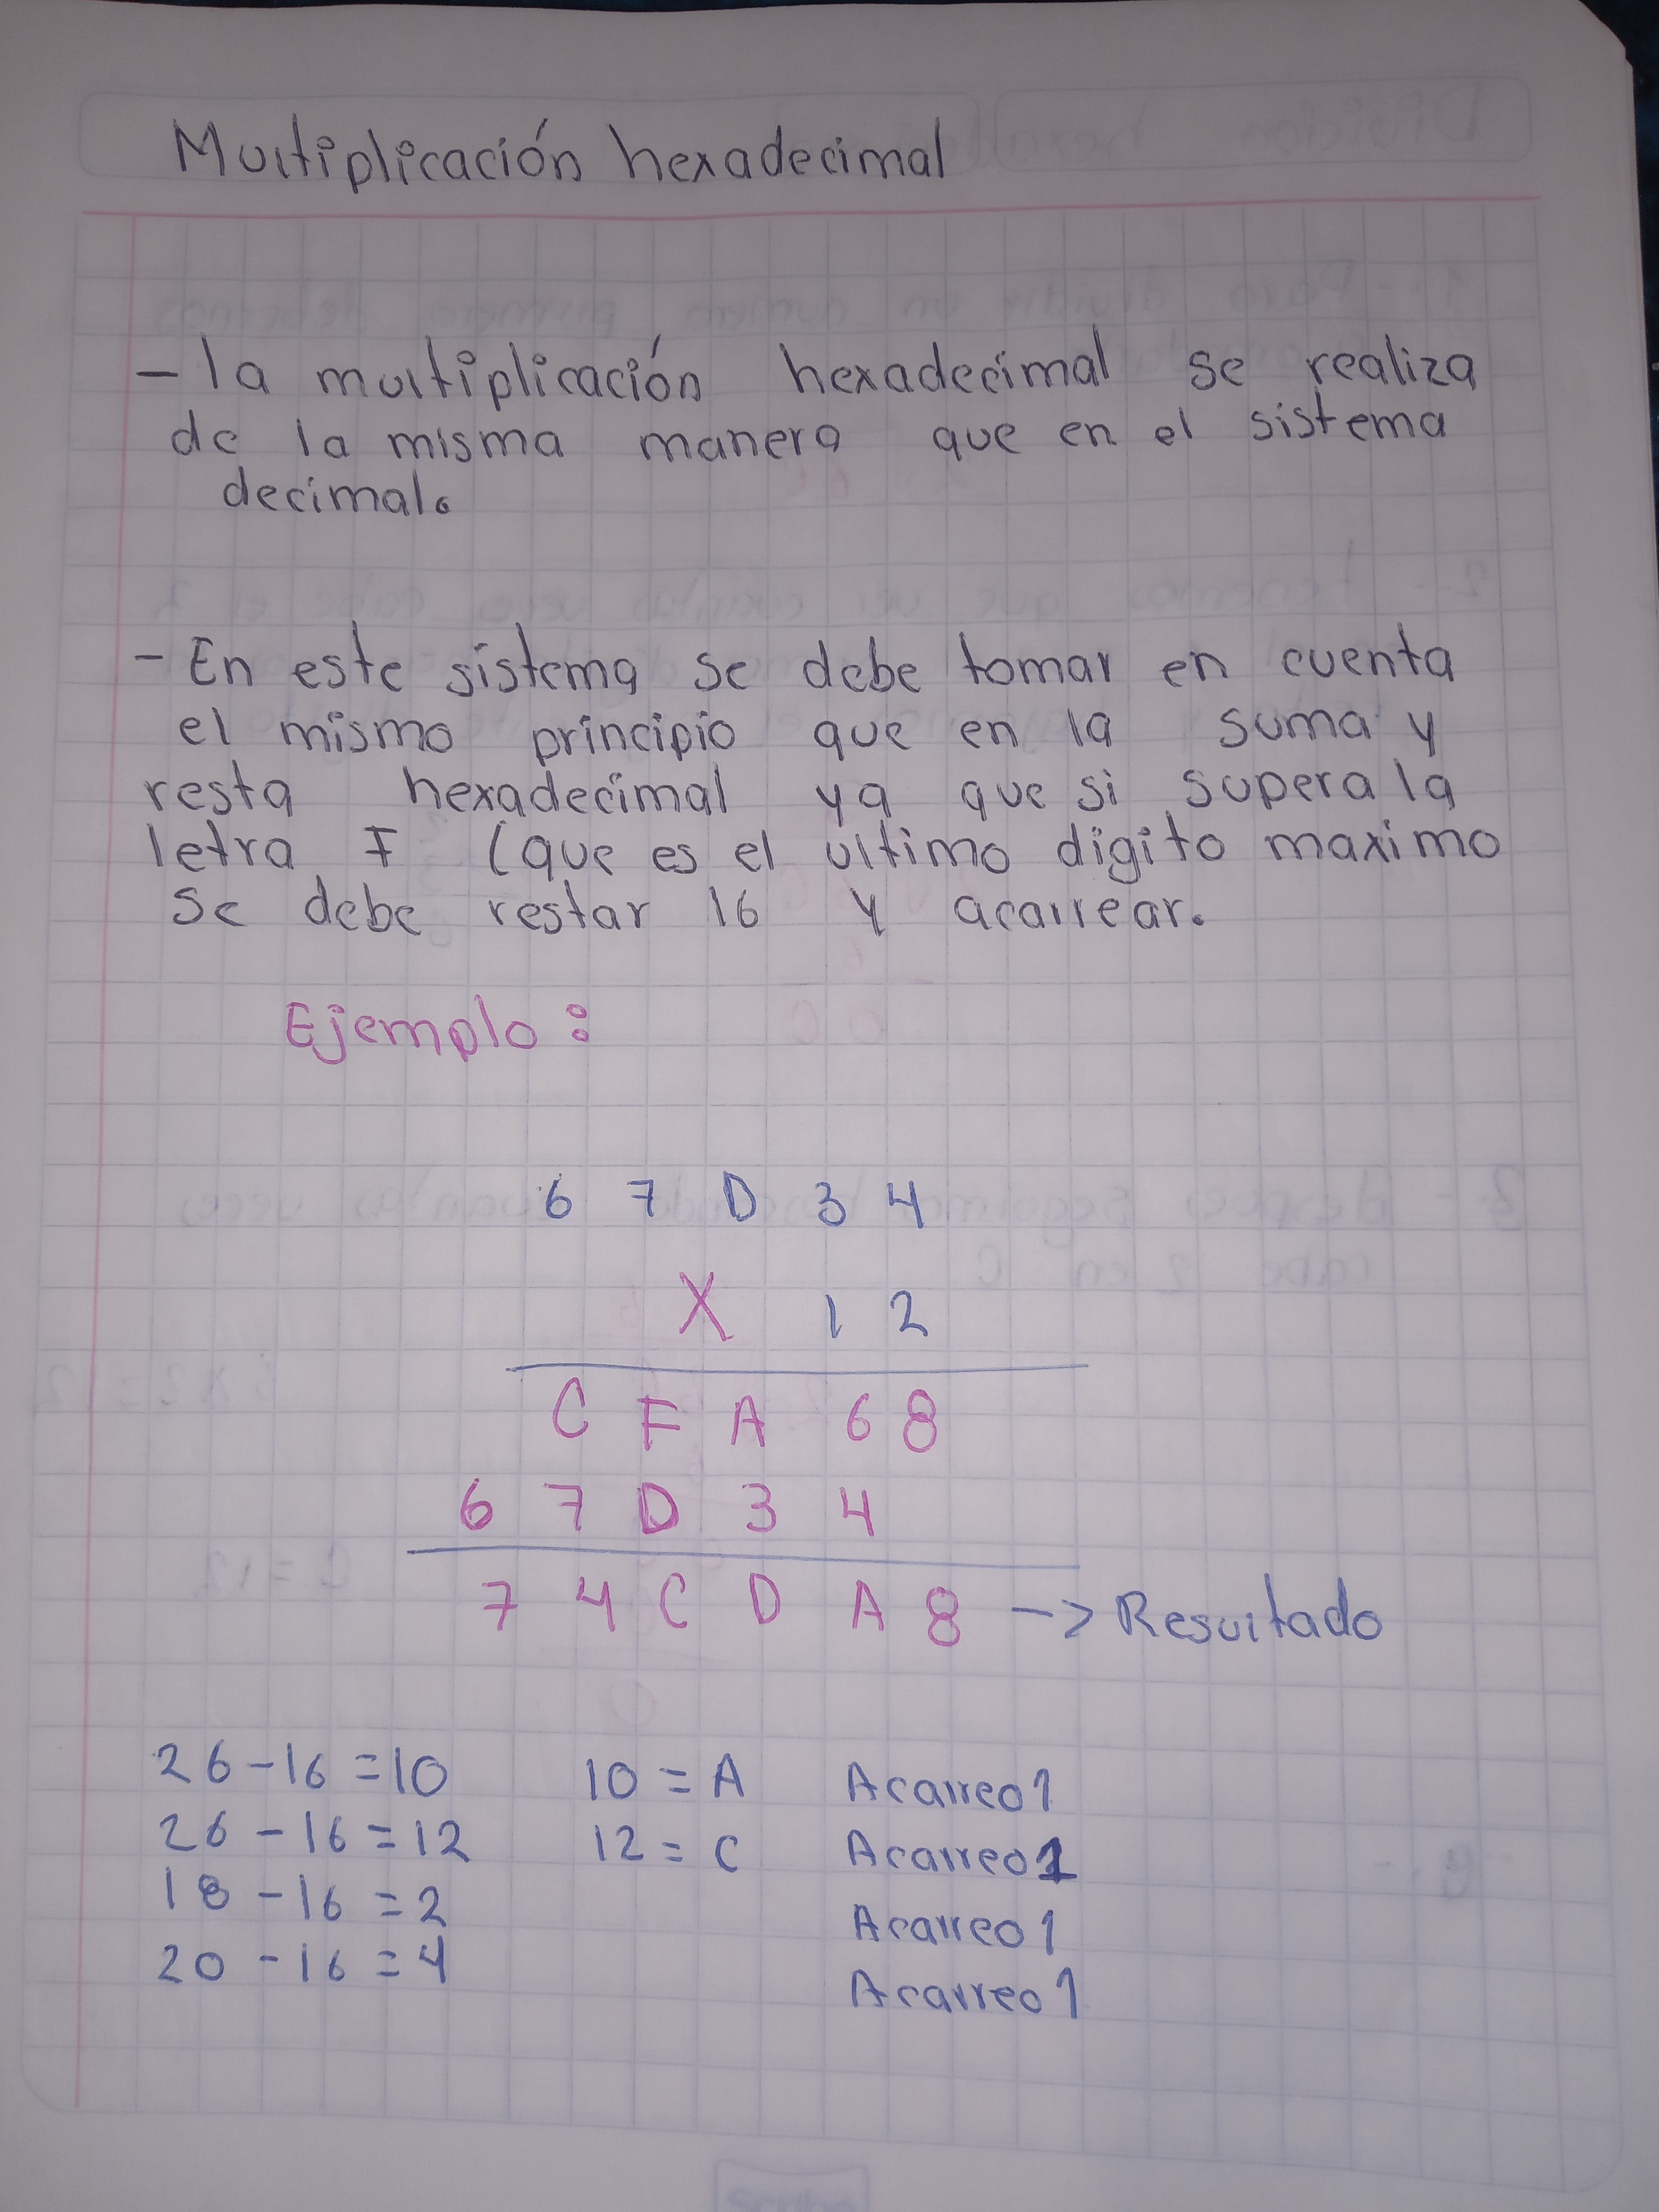 Multiplicación hexadecimal
- la multiplicación hexadecimal se realiza
de la misma manera que en el sistema
decimal.
- En este sistema se debe tomar en cuenta
el mismo principio que en la suma y
resta hexadecimal ya que si supera la
letra F (que es el ultimo digito maximo
se debe restar 16 y acarrear.
Ejemplo:
6 7 D 3 4
X 1 2
C F A 6 8
6 7 D 3 4
7 4 C D A 8 -> Resultado
26 - 16 = 10 10 = A Acarreo 1
26 - 16 = 12 12 = C Acarreo 1
18 - 16 = 2 Acarreo 1
20 - 16 = 4 Acarreo 1
Scribe